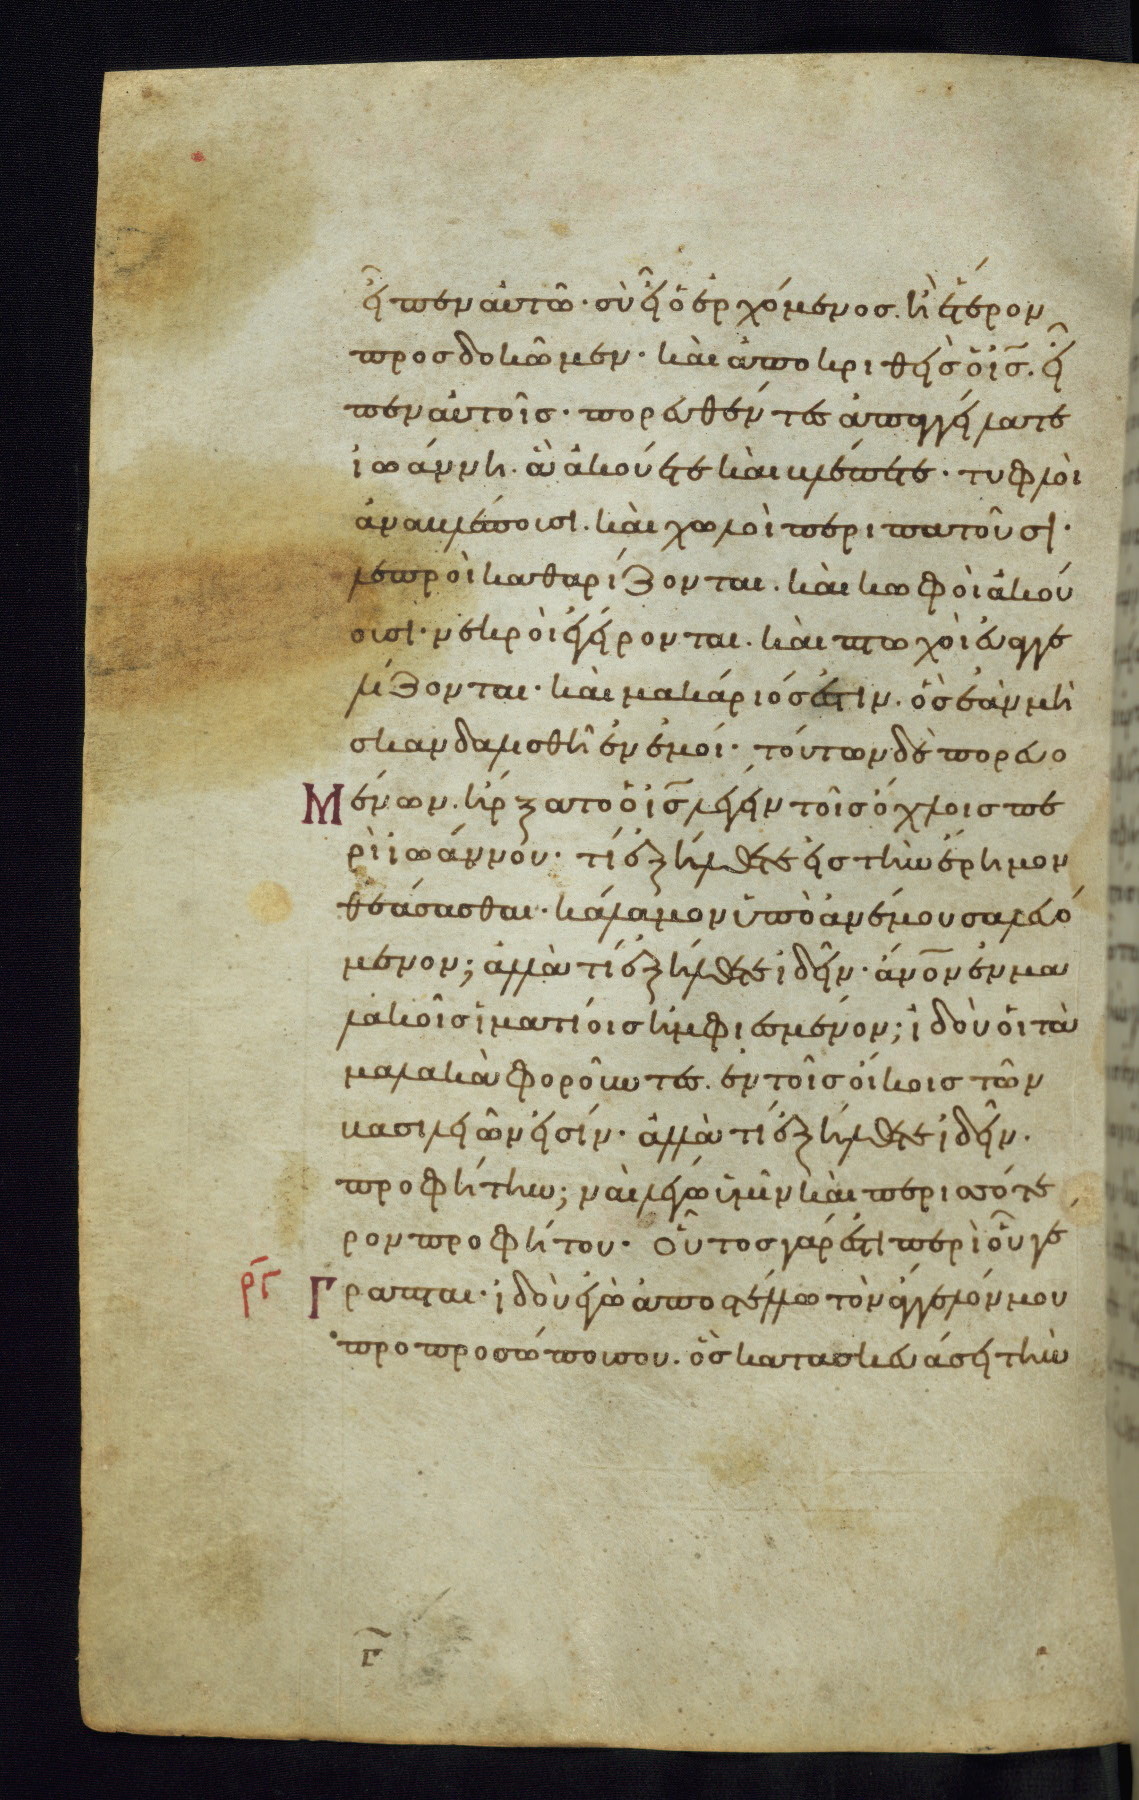 εἶπεν αὐτῶ· σὺ εἶ ὁ ἐρχόμενοσ. ἢ ἕτερον
προσδοκῶμεν· καὶ ἀποκριθεὶσ ὁ ισ̅. εἶ
πεν αὐτοῖσ· πορευθέντεσ ἀπαγγείλατε
ἰωάννη. ἃ ἀκούετε καὶ βλέπετε· τυφλοὶ
ἀναβλέπουσι. καὶ χωλοὶ περιπατοῦσι·
λεπροὶ καθαρίζονται. καὶ κωφοὶ ἀκού
ουσι· νεκροὶ ἐγείρονται. καὶ πτωχοὶ εὐαγγε
λίζονται· καὶ μακάριόσ ἐστιν. ὃσ ἐὰν μὴ
σκανδαλισθῆ ἐν ἐμοί· τούτων δὲ πορευο
Μένων. ἤρξατο ὁ ισ̅ λέγειν τοῖσ ὄχλοισ πε
ρὶ ἰωάννου· τί ἐξήλθετε εἰσ τὴν ἔρημον
θεάσασθαι· κάλαμον ὑπὸ ἀνέμου σαλευό
μενον; ἀλλὰ τί ἐξήλθετε ἰδεῖν· ἄνο̅ν ἐν μα
λακοῖσ ἱματίοισ ἠμφιεσμένον; ἰδοὺ οἱ τὰ
μαλακὰ φοροῦντεσ. ἐν τοῖσ οἴκοισ τῶν
βασιλειῶν εἰσίν· ἀλλὰ τί ἐξήλθετε ἰδεῖν·
προφήτην; ναὶ λέγω ὑμῖν καὶ περισσότε
ρον προφήτου· Οὗτοσ γάρ ἐστι περὶ οὗ γέ
ρ̅γ̅ Γραπται· ἰδοὺ ἐγὼ ἀποστέλλω τὸν ἄγγελόν μου
προ προσώπου σου. ὃσ κατασκευάσει τὴν
γ̅